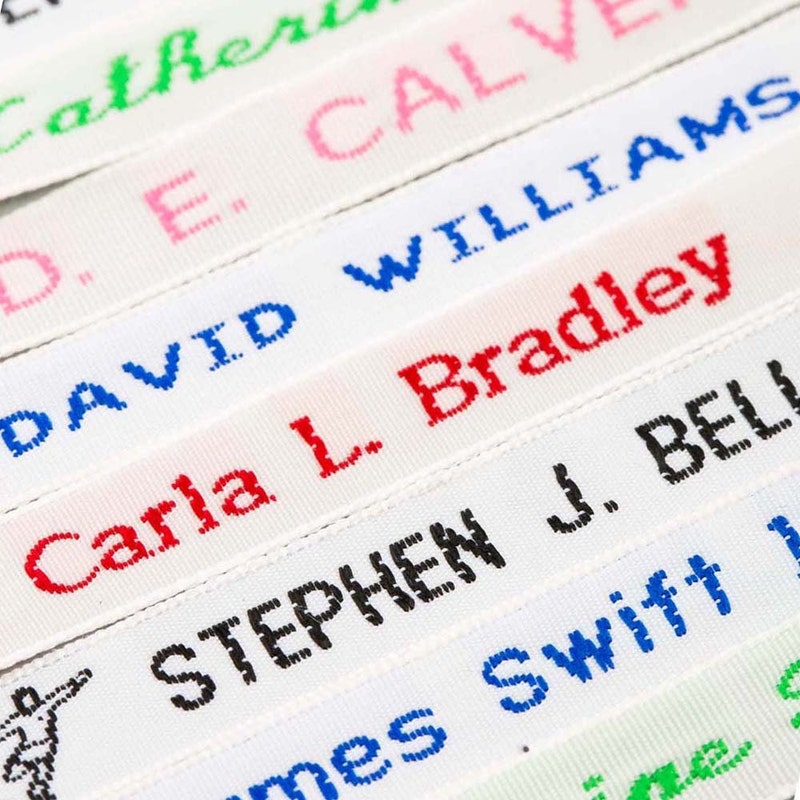 Catherin
D. E. CALVER
DAVID WILLIAMS
Carla L. Bradley
STEPHEN J. BELL
mes Swift
ine S